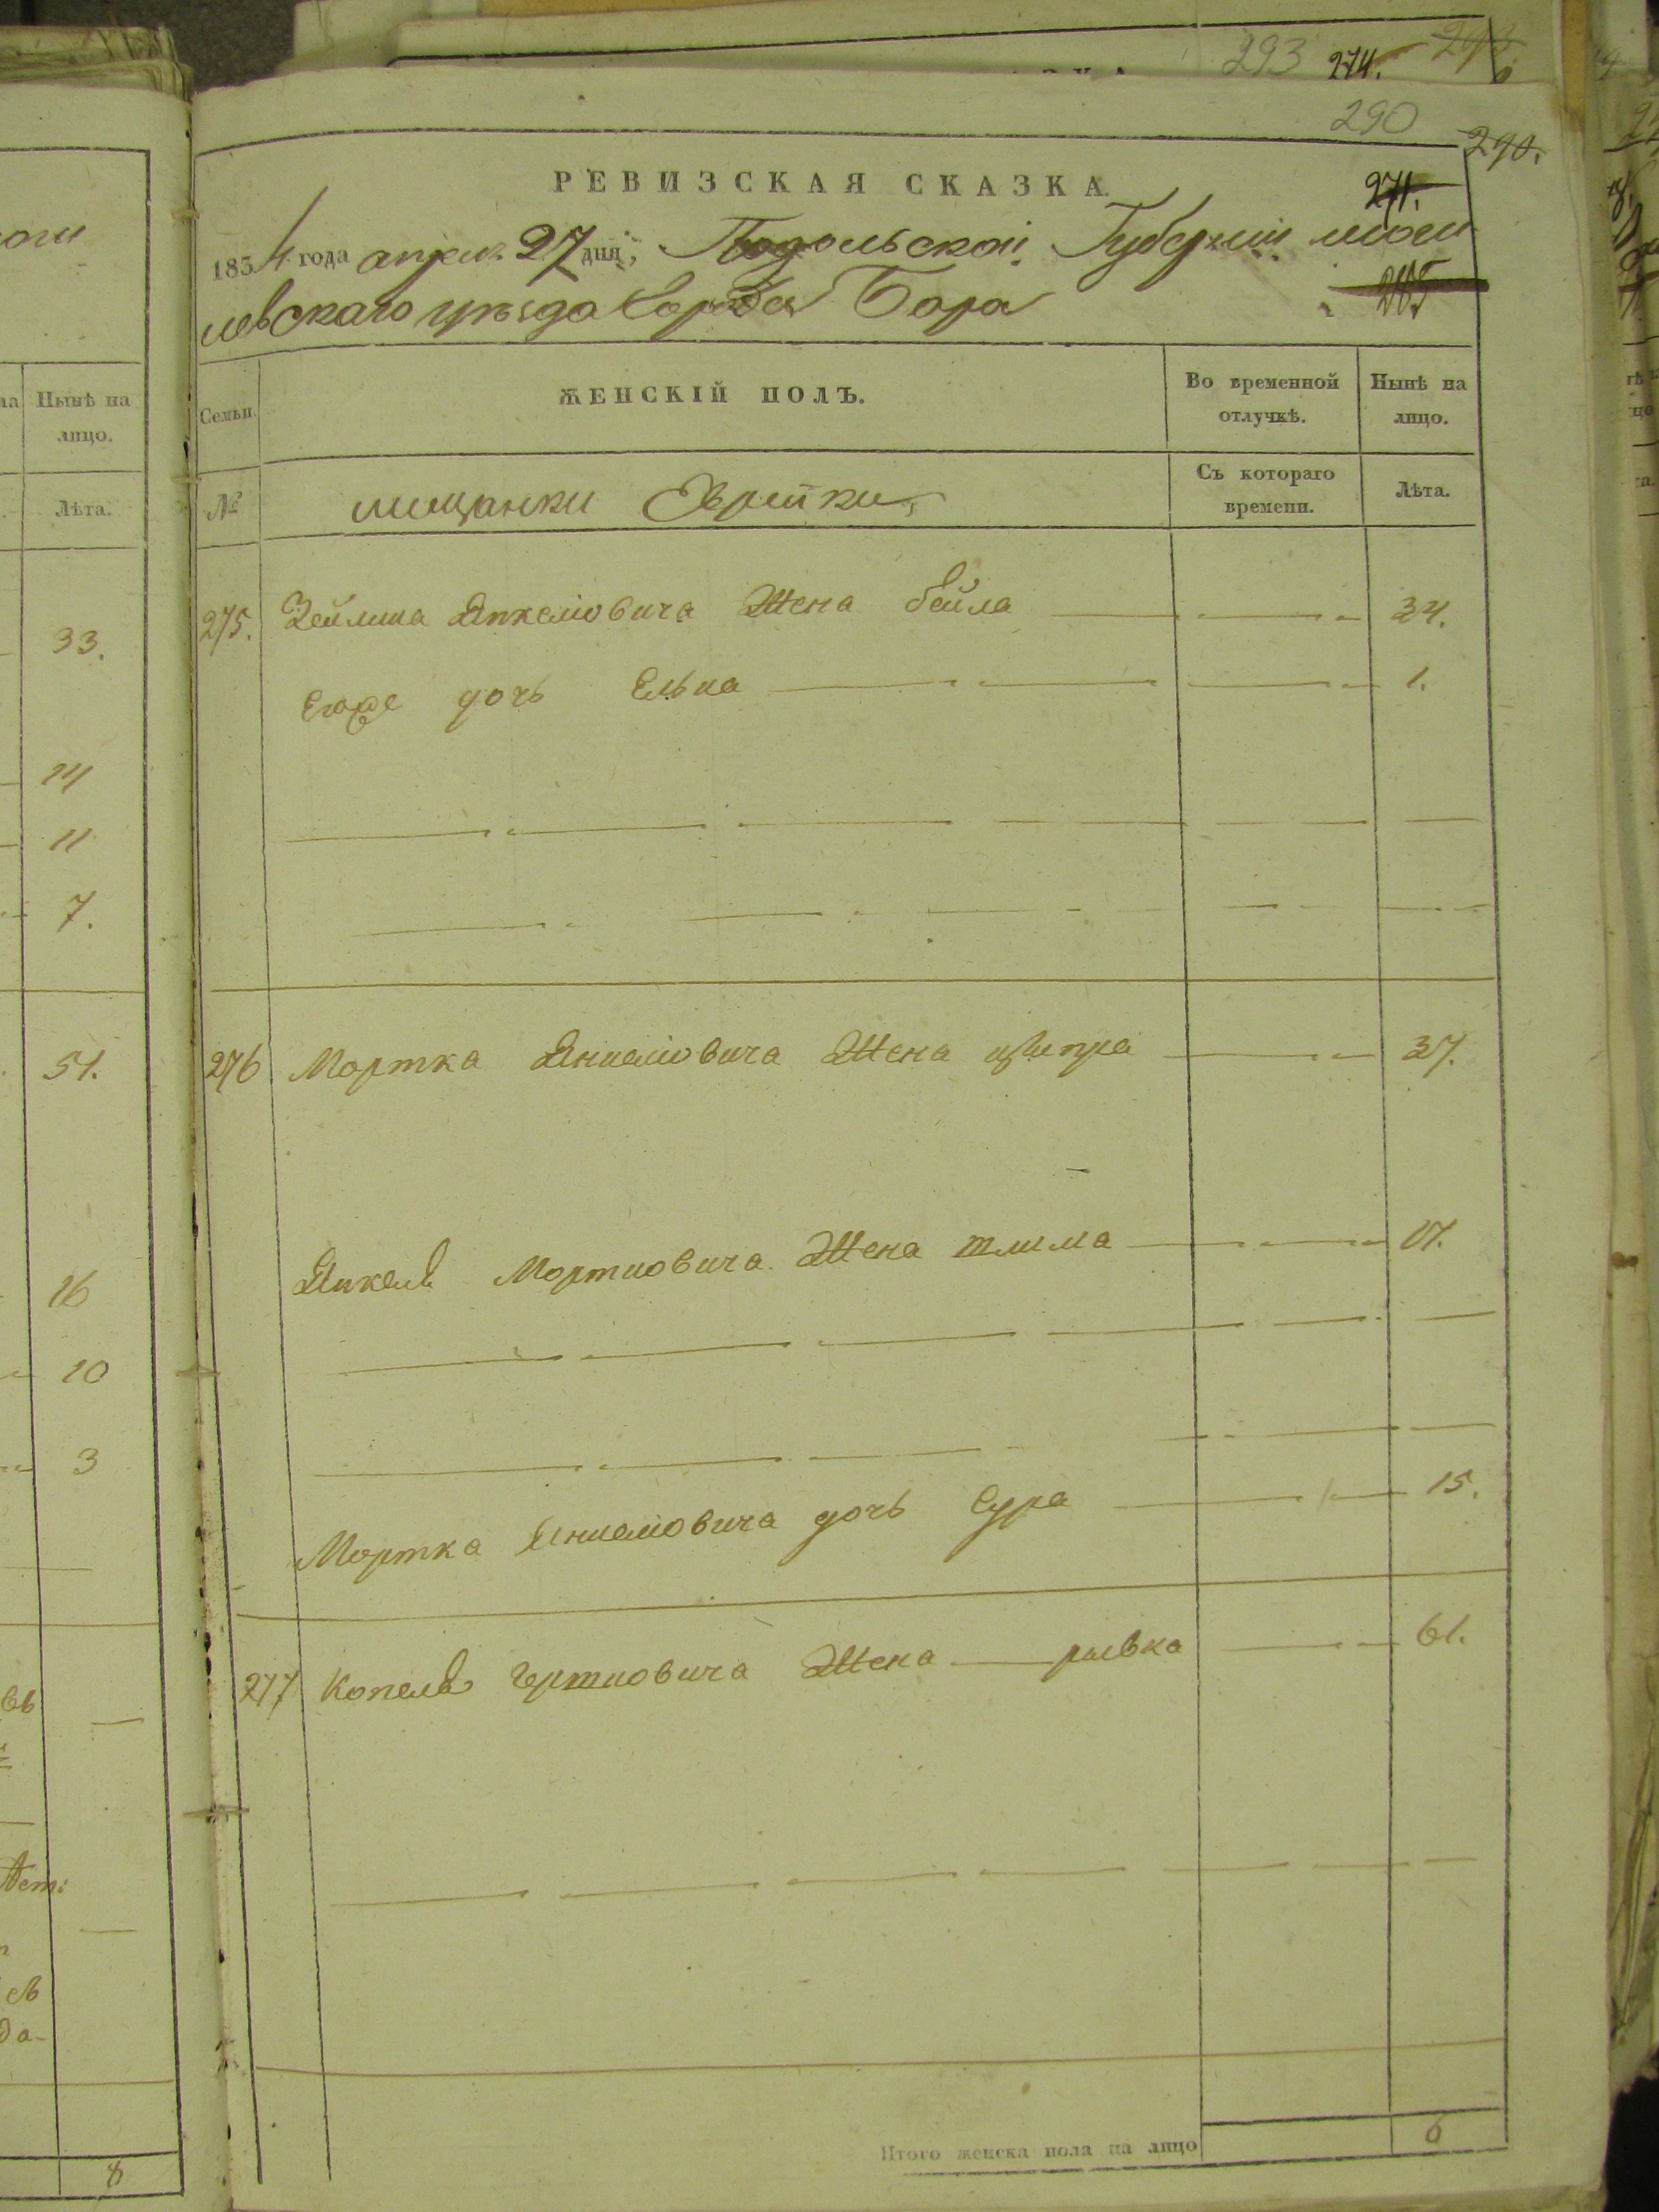 293 274.
290
290.
РЕВИЗСКАЯ СКАЗКА.
271.
1834 года апреля 27 дня; Подольской Губернии могилевскаго уезда города Бара
285
Нынѣ на лицо.
Лѣта.
33.
14
11
7.
51.
16
10
3
8
Семьи.
ЖЕНСКІЙ ПОЛЪ.
Во временной отлучкѣ.
Нынѣ на лицо.
№
мещанки Еврейки,
Съ котораго времени.
Лѣта.
275. Зейлика Янкелiовича Жена бейла 34.
Егоже дочь Елька 1.
276 Мортка Жена ципра 37.
Янкеля Мортковича Жена 17.
Мортка дочь Сура 15.
277 Копеля Жена рывка 61.
Итого женска пола на лицо 6